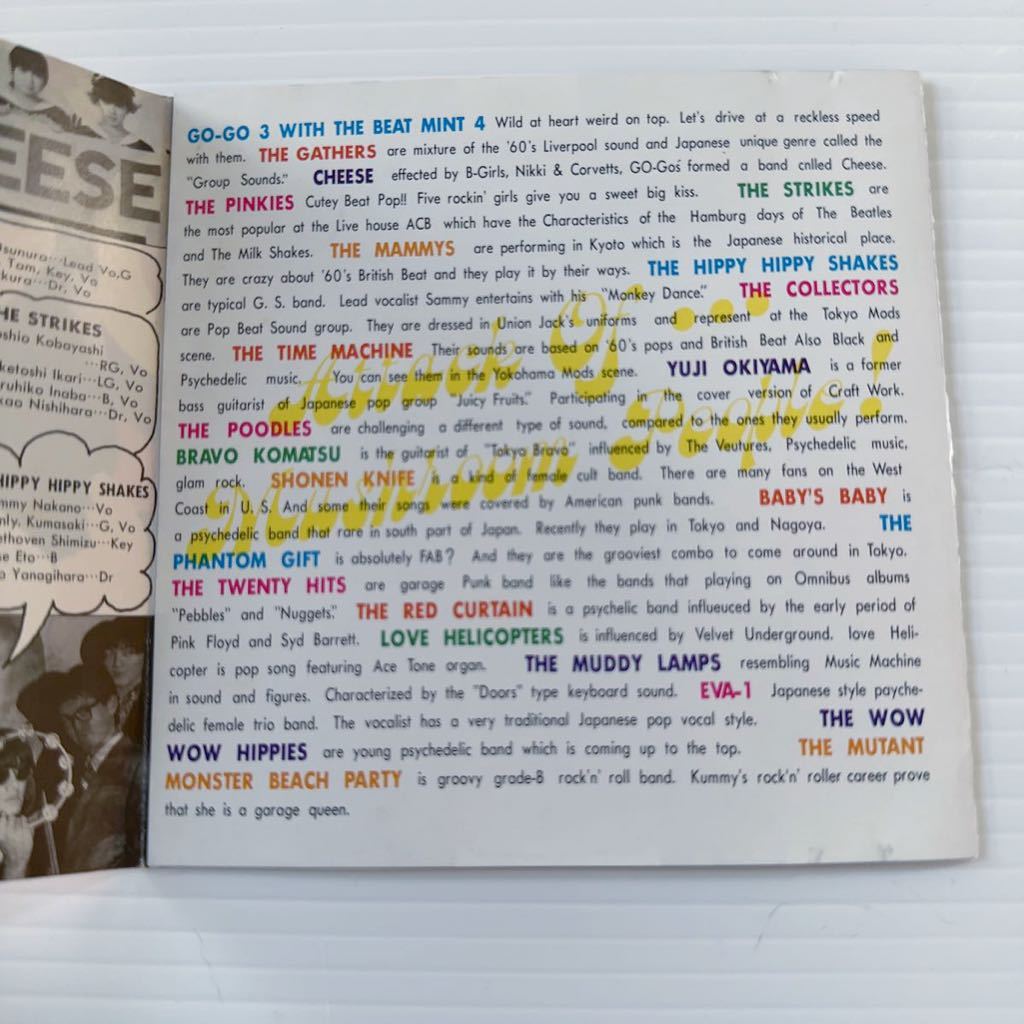 EESE
sunura···Lead Vo,G
Tam, Key, Vo
kura···Dr, Vo
HE STRIKES
shio Kobayashi
···RG, Vo
ketoshi Ikari···LG, Vo
ruhiko Inaba···B, Vo
kao Nishihara···Dr, Vo
HIPPY HIPPY SHAKES
mmy Nakano···Vo
nly. Kumasaki···G, Vo
ethoven Shimizu···Key
se Eto···B
o Yanagihara···Dr
GO-GO 3 WITH THE BEAT MINT 4 Wild at heart weird on top. Let's drive at a reckless speed
with them. THE GATHERS are mixture of the '60's Liverpool sound and Japanese unique genre called the
"Group Sounds." CHEESE effected by B-Girls, Nikki & Corvetts, GO-Gos formed a band cnlled Cheese.
THE PINKIES Cutey Beat Pop!! Five rockin' girls give you a sweet big kiss. THE STRIKES are
the most popular at the Live house ACB which have the Characteristics of the Hamburg days of The Beatles
and The Milk Shakes. THE MAMMYS are performing in Kyoto which is the Japanese historical place.
They are crazy about '60's British Beat and they play it by their ways. THE HIPPY HIPPY SHAKES
are typical G. S. band. Lead vocalist Sammy entertains with his "Monkey Dance." THE COLLECTORS
are Pop Beat Sound group. They are dressed in Union Jack's uniforms and represent at the Tokyo Mods
scene. THE TIME MACHINE Their sounds are based on '60's pops and British Beat Also Black and
Psychedelic music, You can see them in the Yokohama Mods scene. YUJI OKIYAMA is a former
bass guitarist of Japanese pop group "Juicy Fruits." Participating in the cover version of Craft Work.
THE POODLES are challenging a different type of sound, compared to the ones they usually perform.
BRAVO KOMATSU is the guitarist of "Tokyo Bravo" influenced by The Veutures, Psychedelic music,
glam rock. SHONEN KNIFE is a kind of female cult band. There are many fans on the West
Coast in U. S. And some their songs were covered by American punk bands. BABY'S BABY is
a psychedelic band that rare in south part of Japan. Recently they play in Tokyo and Nagoya. THE
PHANTOM GIFT is absolutely FAB? And they are the grooviest combo to come around in Tokyo.
THE TWENTY HITS are garage Punk band like the bands that playing on Omnibus albums
"Pebbles" and "Nuggets." THE RED CURTAIN is a psychelic band influeuced by the early period of
Pink Floyd and Syd Barrett. LOVE HELICOPTERS is influenced by Velvet Underground. love Heli-
copter is pop song featuring Ace Tone organ. THE MUDDY LAMPS resembling Music Machine
in sound and figures. Characterized by the "Doors" type keyboard sound. EVA-1 Japanese style payche-
delic female trio band. The vocalist has a very traditional Japanese pop vocal style. THE WOW
WOW HIPPIES are young psychedelic band which is coming up to the top. THE MUTANT
MONSTER BEACH PARTY is groovy grade-B rock'n' roll band. Kummy's rock'n' roller career prove
that she is a garage queen.
Attack Of ···
Mushroom People!